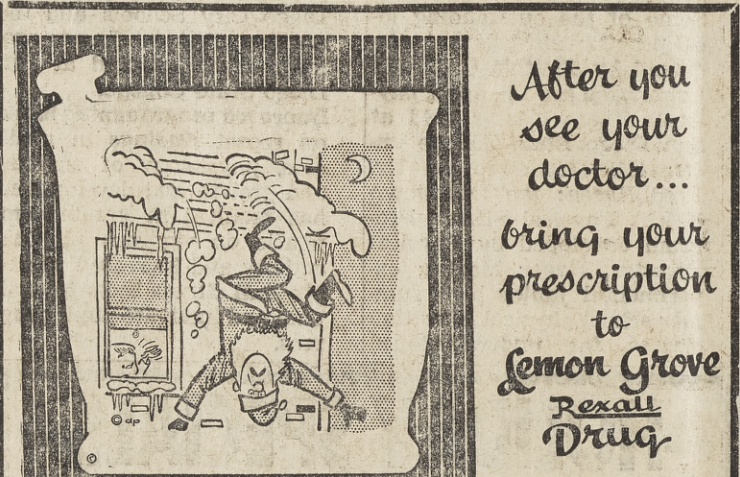 After you
see your
doctor...
bring your
prescription
to
Lemon Grove
Rexall
Drug
© ap
©